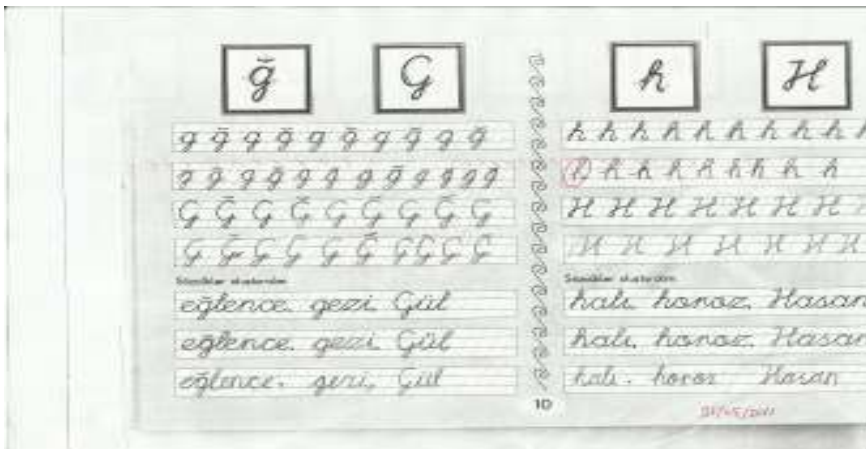 ğ G
g ğ g ğ g ğ g ğ g ğ
g g g ğ g ğ g ğ g g g g
G Ğ G Ğ G Ğ G Ğ G
G Ğ G G G Ğ G G G G
Sözcükler oluşturalım
eğlence, gezi, Gül
eğlence, gezi, Gül
eğlence, gezi, Gül
10
h H
h h h h h h h h h h
h h h h h h h h h
H H H H H H H H
H H H H H H H
Sözcükler oluşturalım
halı, horoz, Hasan
halı, horoz, Hasan
halı, horoz Hasan